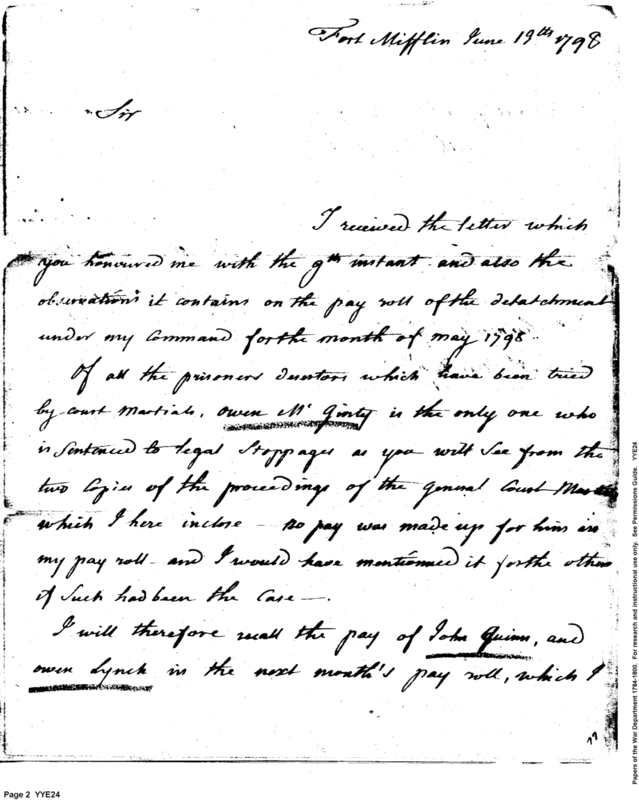 Fort Mifflin June 19th 1798
Sir
I received the letter which
you honoured me with the 9th instant and also the
observations it contains on the pay roll of the detatchment
under my Command for the month of may 1798
Of all the prisoners desertors which have been tried
by court martials, owen Mc Ginty is the only one who
is Sentenced to legal Stoppages as you will See from the
two Copies of the proceedings of the general Court
which I here inclose — no pay was made up for him in
my pay roll - and I would have mentionned it for the others
if Such had been the Case —.
I will therefore recall the pay of John Quinn, and
owen Lynch in the next month's pay roll, which I
Page 2 YYE24
Papers of the War Department 1784-1800. For research and instructional use only. See Permissions Guide. YYE24